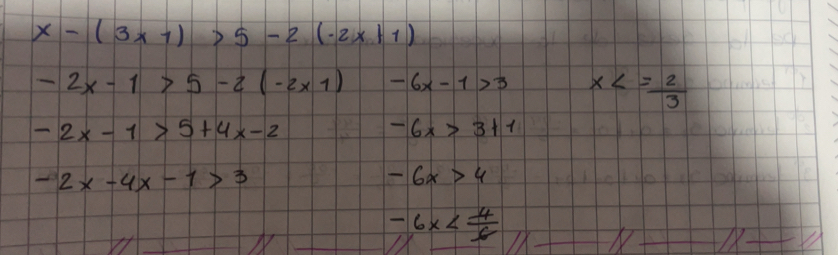 x - (3x 1) > 5 - 2 (-2x+1)
-2x-1 > 5-2 (-2x 1)
-2x-1 > 5+4x-2
-2x-4x-1>3
-6x-1>3
-6x > 3+1
-6x > 4
-6x < 4/6
x < = 2/3